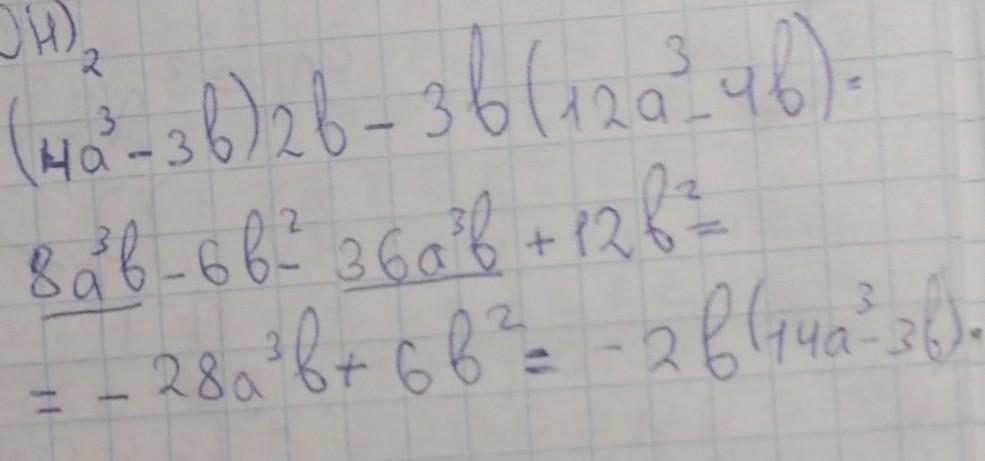 H)
2
(4a³ - 3b)2b - 3b(12a³ - 4b) =
8a³b - 6b² - 36a³b + 12b² =
= - 28a³b + 6b² = - 2b(14a³ - 3b).